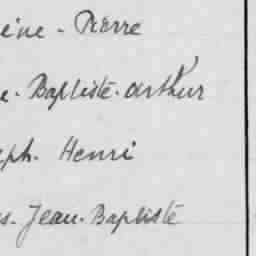 eine - Pierre
e. Baptiste. Arthur
eph. Henri
s. Jean. Baptiste